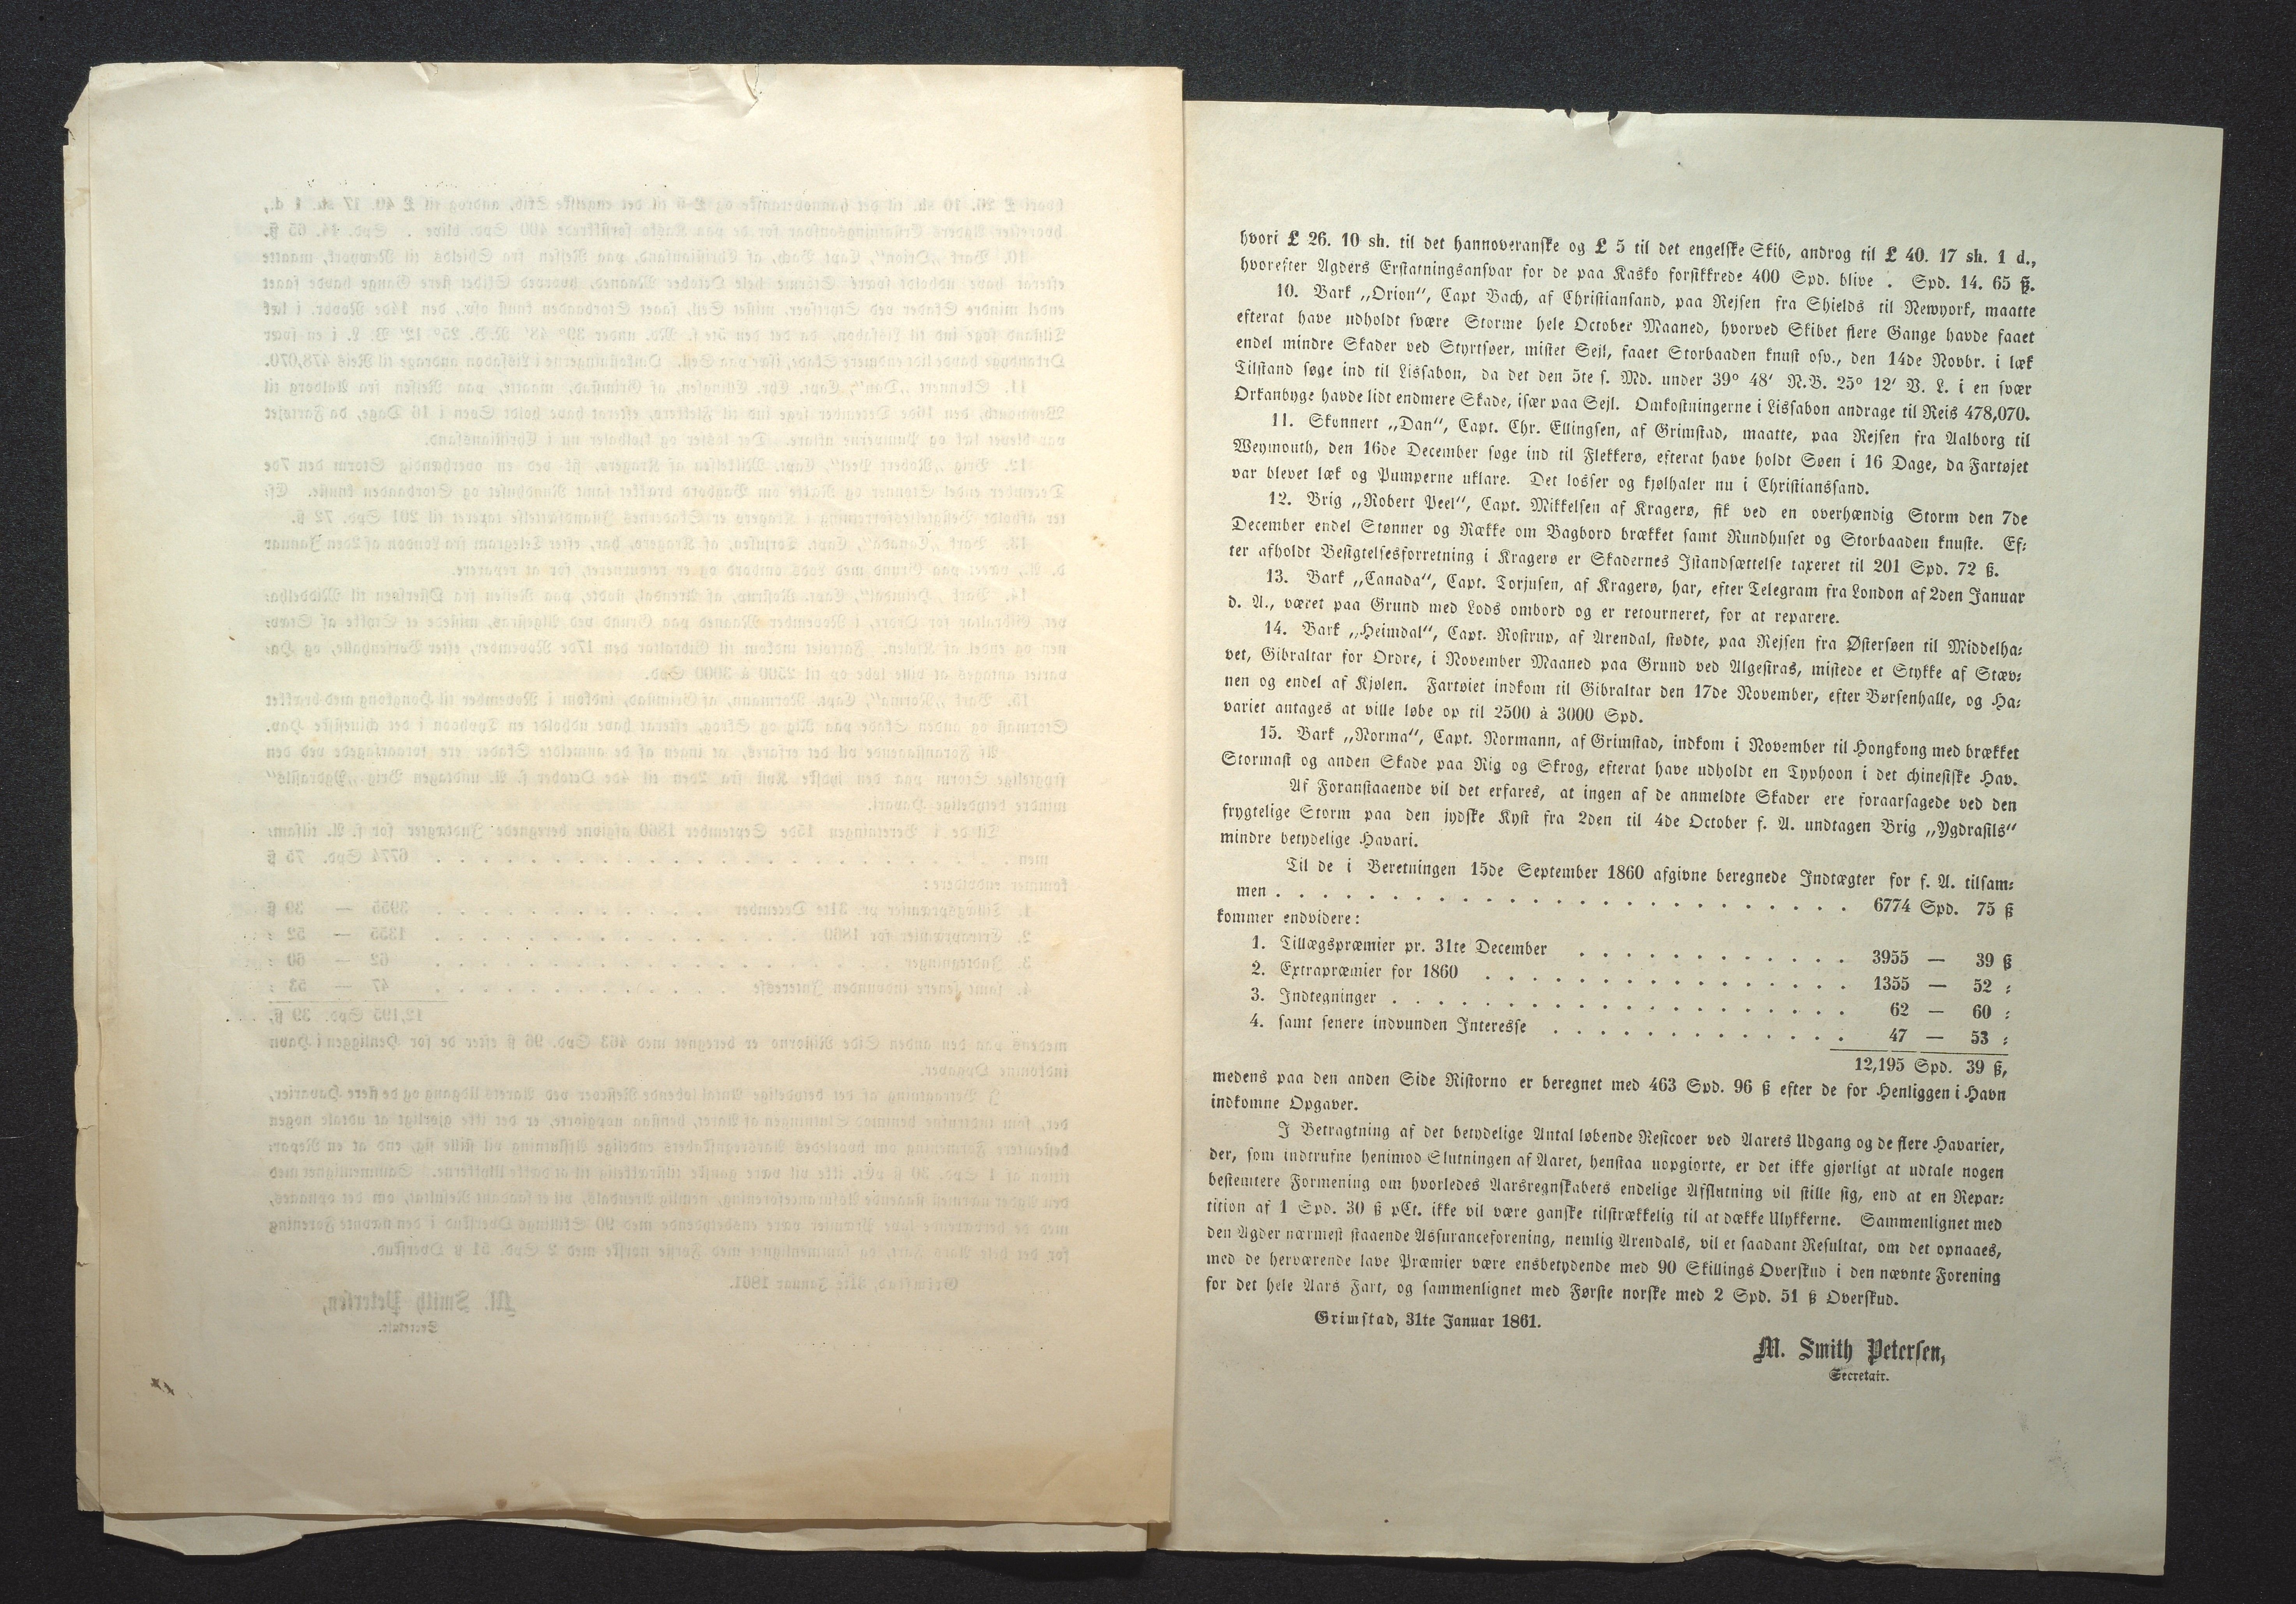 hvori £ 26. 10 sh. til det hannoveranske og £ 5 til det engelske Skib, androg til £ 40. 17 sh. 1 d.,
hvorefter Agders Erstatningsansvar for de paa Kasko forsikkrede 400 Spd. blive . Spd. 14. 65 ß.
10. Bark „Orion“, Capt Bach, af Christiansand, paa Rejsen fra Shields til Newyork, maatte
efterat have udholdt svære Storme hele October Maaned, hvorved Skibet flere Gange havde faaet
endel mindre Skader ved Styrtsøer, mistet Sejl, faaet Storbaaden knust osv., den 14de Novbr. i læk
Tilstand søge ind til Lissabon, da det den 5te s. Md. under 39° 48′ N.B. 25° 12′ V. L. i en svær
Orkanbyge havde lidt endmere Skade, især paa Sejl. Omkostningerne i Lissabon andrage til Reis 478,070.
11. Skonnert „Dan“, Capt. Chr. Ellingsen, af Grimstad, maatte, paa Rejsen fra Aalborg til
Weymouth, den 16de December søge ind til Flekkerø, efterat have holdt Søen i 16 Dage, da Fartøjet
var blevet læk og Pumperne uklare. Det losser og kjølhaler nu i Christianssand.
12. Brig „Robert Peel“, Capt. Mikkelsen af Kragerø, fik ved en overhændig Storm den 7de
December endel Stønner og Række om Bagbord brækket samt Rundhuset og Storbaaden knuste. Ef-
ter afholdt Besigtelsesforretning i Kragerø er Skadernes Istandsættelse taxeret til 201 Spd. 72 ß.
13. Bark „Canada“, Capt. Torjusen, af Kragerø, har, efter Telegram fra London af 2den Januar
d. A., været paa Grund med Lods ombord og er retourneret, for at reparere.
14. Bark „Heimdal“, Capt. Rostrup, af Arendal, stødte, paa Rejsen fra Østersøen til Middelha-
vet, Gibraltar for Ordre, i November Maaned paa Grund ved Algesiras, mistede et Stykke af Stæv-
nen og endel af Kjølen. Fartøiet indkom til Gibraltar den 17de November, efter Børsenhalle, og Ha-
variet antages at ville løbe op til 2500 à 3000 Spd.
15. Bark „Norma“, Capt. Normann, af Grimstad, indkom i November til Hongkong med brækket
Stormast og anden Skade paa Rig og Skrog, efterat have udholdt en Typhoon i det chinesiske Hav.
Af Foranstaaende vil det erfares, at ingen af de anmeldte Skader ere foraarsagede ved den
frygtelige Storm paa den jydske Kyst fra 2den til 4de October f. A. undtagen Brig „Ygdrasils“
mindre betydelige Havari.
Til de i Beretningen 15de September 1860 afgivne beregnede Indtægter for f. A. tilsam-
men . . . . . . . . . . . . . . . . . . . . . . 6774 Spd. 75 ß
kommer endvidere:
1. Tillægspræmier pr. 31te December . . . . . . . . . . . 3955 — 39 ß
2. Extrapræmier for 1860 . . . . . . . . . . . . . . . 1355 — 52 -
3. Indtegninger . . . . . . . . . . . . . . . . . . . 62 — 60 -
4. samt senere indvunden Interesse . . . . . . . . . . . . 47 — 53 -
12,195 Spd. 39 ß,
medens paa den anden Side Ristorno er beregnet med 463 Spd. 96 ß efter de for Henliggen i Havn
indkomne Opgaver.
I Betragtning af det betydelige Antal løbende Resicoer ved Aarets Udgang og de flere Havarier,
der, som indtrufne henimod Slutningen af Aaret, henstaa uopgjorte, er det ikke gjørligt at udtale nogen
bestemtere Formening om hvorledes Aarsregnskabets endelige Afslutning vil stille sig, end at en Repar-
tition af 1 Spd. 30 ß pCt. ikke vil være ganske tilstrækkelig til at dække Ulykkerne. Sammenlignet med
den Agder nærmest staaende Assuranceforening, nemlig Arendals, vil et saadant Resultat, om det opnaaes,
med de herværende lave Præmier være ensbetydende med 90 Skillings Overskud i den nævnte Forening
for det hele Aars Fart, og sammenlignet med Første norske med 2 Spd. 51 ß Overskud.
Grimstad, 31te Januar 1861.
M. Smith Petersen,
Secretair.